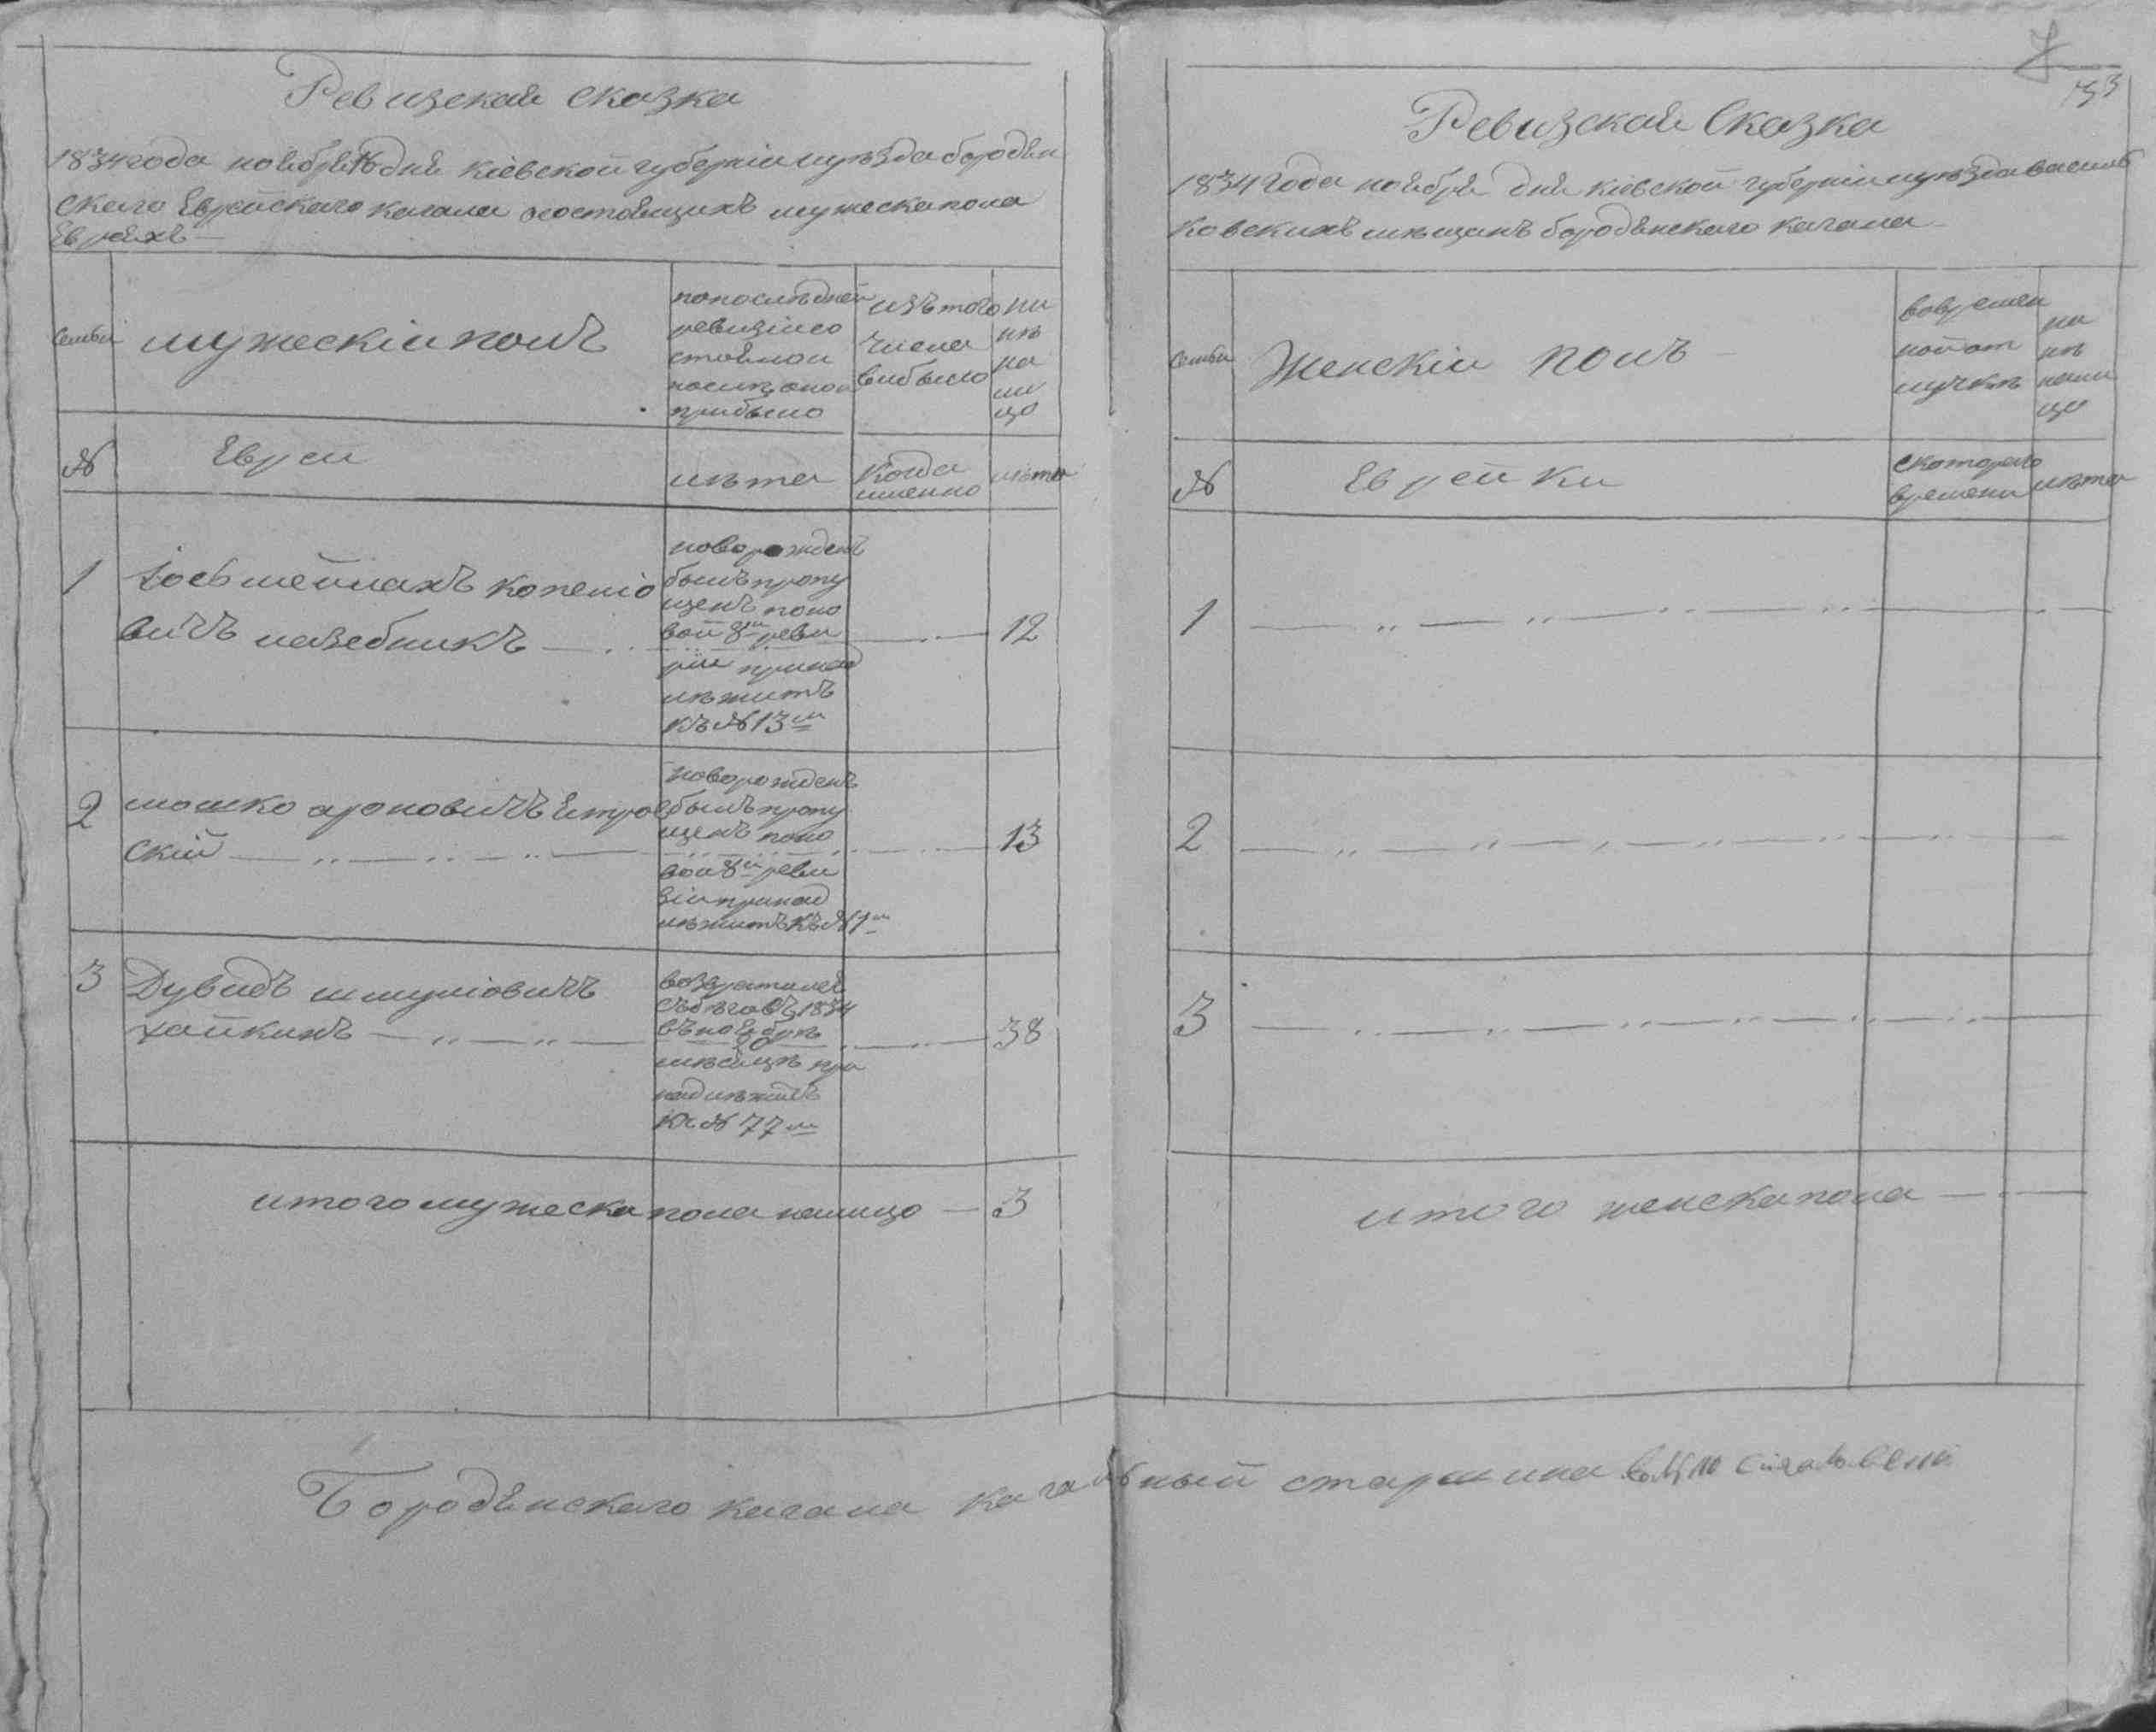 Ревизская сказка
1834 года ноября 16 дня Кіевской губерніи уезда бородян
ского Еврейского кагала о состоящихъ мужеска пола
Евреяхъ
семьи
мужескіи полъ
по последней
ревизіи со
стояло и
после оной
прибыло
изъ того
числа
выбыло
ны
нѣ
на
ли
цо
№
Евреи
лѣта
Когда
именно
лѣта
1
Іось мейлахъ копелio
вичъ
12
новорожденъ
былъ пропу
щенъ по но
вой 8й реви
зіи принад
лѣжитъ
къ № 13м
2
мошко ароновичъ
скій
13
новорожденъ
былъ пропу
щенъ по но
вой 8й реви
зіи принад
лѣжитъ къ № 1м
3
Дувидъ шмуліовичъ
хайкинъ
38
возвратился
съ бѣгов 1834
въ ноябрѣ
мѣсяцѣ при
надлѣжитъ
къ № 77м
итого мужеска пола налицо — 3
7
153
Ревизская Сказка
1834 года ноября дня кіевской губерніи уезда василь
ковскихъ мѣщанъ бородянского кагала
семьи
Женскіи полъ
во времен
ной от
лучкѣ
ны
нѣ
нали
цо
№
Еврейки
с которого
времени
лѣта
1
2
3
итого женска пола
Бородянского кагала кагальный старшина